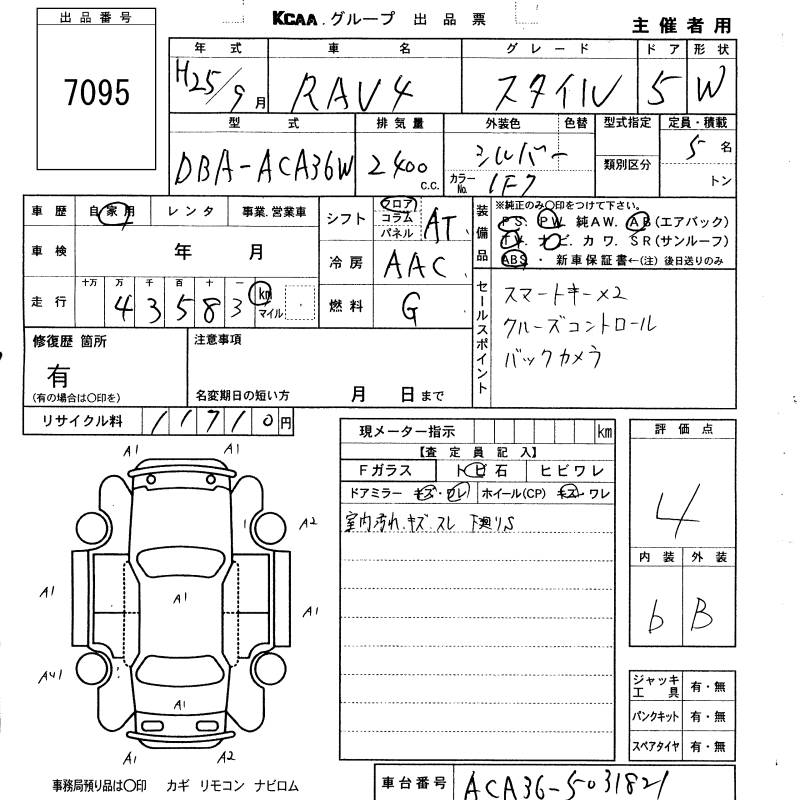 KCAA.グループ 出品票
主催者用
出品番号
7095
年式 車名 グレード ドア 形状
H25/9月 RAV4 スタイル 5 W
型式 排気量 外装色 色替 型式指定 定員・積載
DBA-ACA36W 2400 C.C. シルバー カラーNo. 1F7 類別区分 5名
トン
車歴 自家用 レンタ 事業.営業車
車検 年 月
走行 十万 万 千 百 十 一
43583 km マイル
シフト フロア コラム パネル AT
冷房 AAC
燃料 G
装備品 ※純正のみ〇印をつけて下さい。
PS. PW. 純AW. AB(エアバック)
TV. ナビ. カワ. SR(サンルーフ)
ABS ・ 新車保証書←(注) 後日送りのみ
セールスポイント
スマートキー×2
クルーズコントロール
バックカメラ
修復歴 箇所
有
(有の場合は〇印を)
注意事項
名変期日の短い方 月 日まで
リサイクル料 11710円
現メーター指示 km
【査定員記入】
Fガラス トビ石 ヒビワレ
ドアミラー キズ・ワレ ホイール(CP) キズ・ワレ
室内汚れ.キズ.スレ 下廻りS
評価点
4
内装 外装
b B
A1 A1
1 A2
A1 A1 A1
A41
A1
A1 A2
ジャッキ工具 有・無
パンクキット 有・無
スペアタイヤ 有・無
事務局預り品は〇印 カギ リモコン ナビロム
車台番号 ACA36-5031821